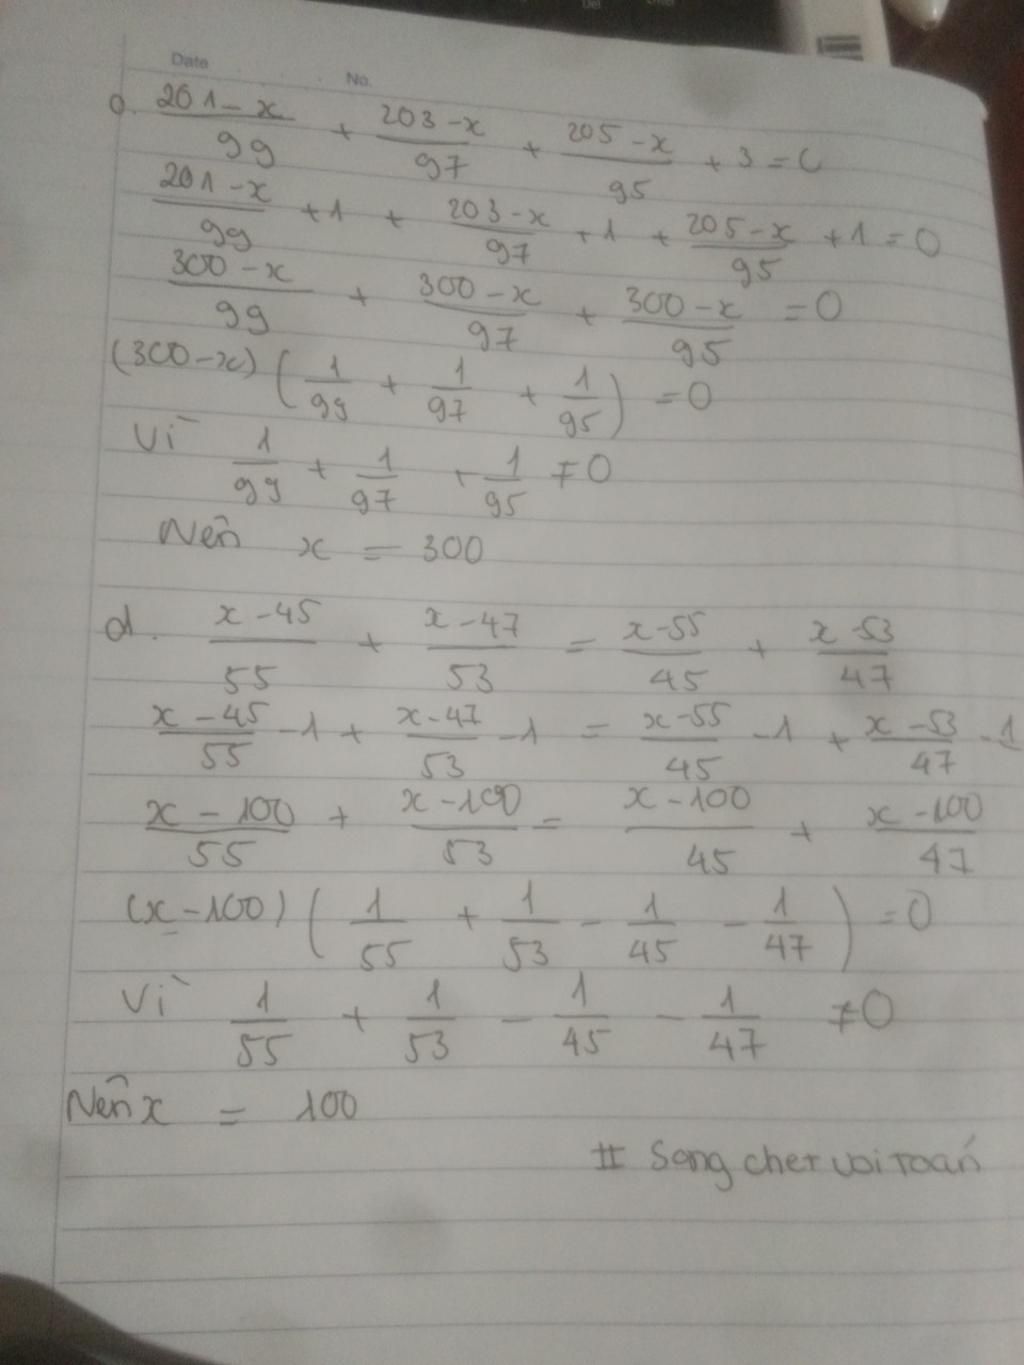 Date No.
c. \frac{201-x}{99} + \frac{203-x}{97} + \frac{205-x}{95} + 3 = 0
\frac{201-x}{99} + 1 + \frac{203-x}{97} + 1 + \frac{205-x}{95} + 1 = 0
\frac{300-x}{99} + \frac{300-x}{97} + \frac{300-x}{95} = 0
(300-x) ( \frac{1}{99} + \frac{1}{97} + \frac{1}{95} ) = 0
Vì \frac{1}{99} + \frac{1}{97} + \frac{1}{95} ≠ 0
Nên x = 300
d. \frac{x-45}{55} + \frac{x-47}{53} = \frac{x-55}{45} + \frac{x-53}{47}
\frac{x-45}{55} - 1 + \frac{x-47}{53} - 1 = \frac{x-55}{45} - 1 + \frac{x-53}{47} - 1
\frac{x-100}{55} + \frac{x-100}{53} = \frac{x-100}{45} + \frac{x-100}{47}
(x-100) ( \frac{1}{55} + \frac{1}{53} - \frac{1}{45} - \frac{1}{47} ) = 0
Vì \frac{1}{55} + \frac{1}{53} - \frac{1}{45} - \frac{1}{47} ≠ 0
Nên x = 100
# Song chet voi Toán